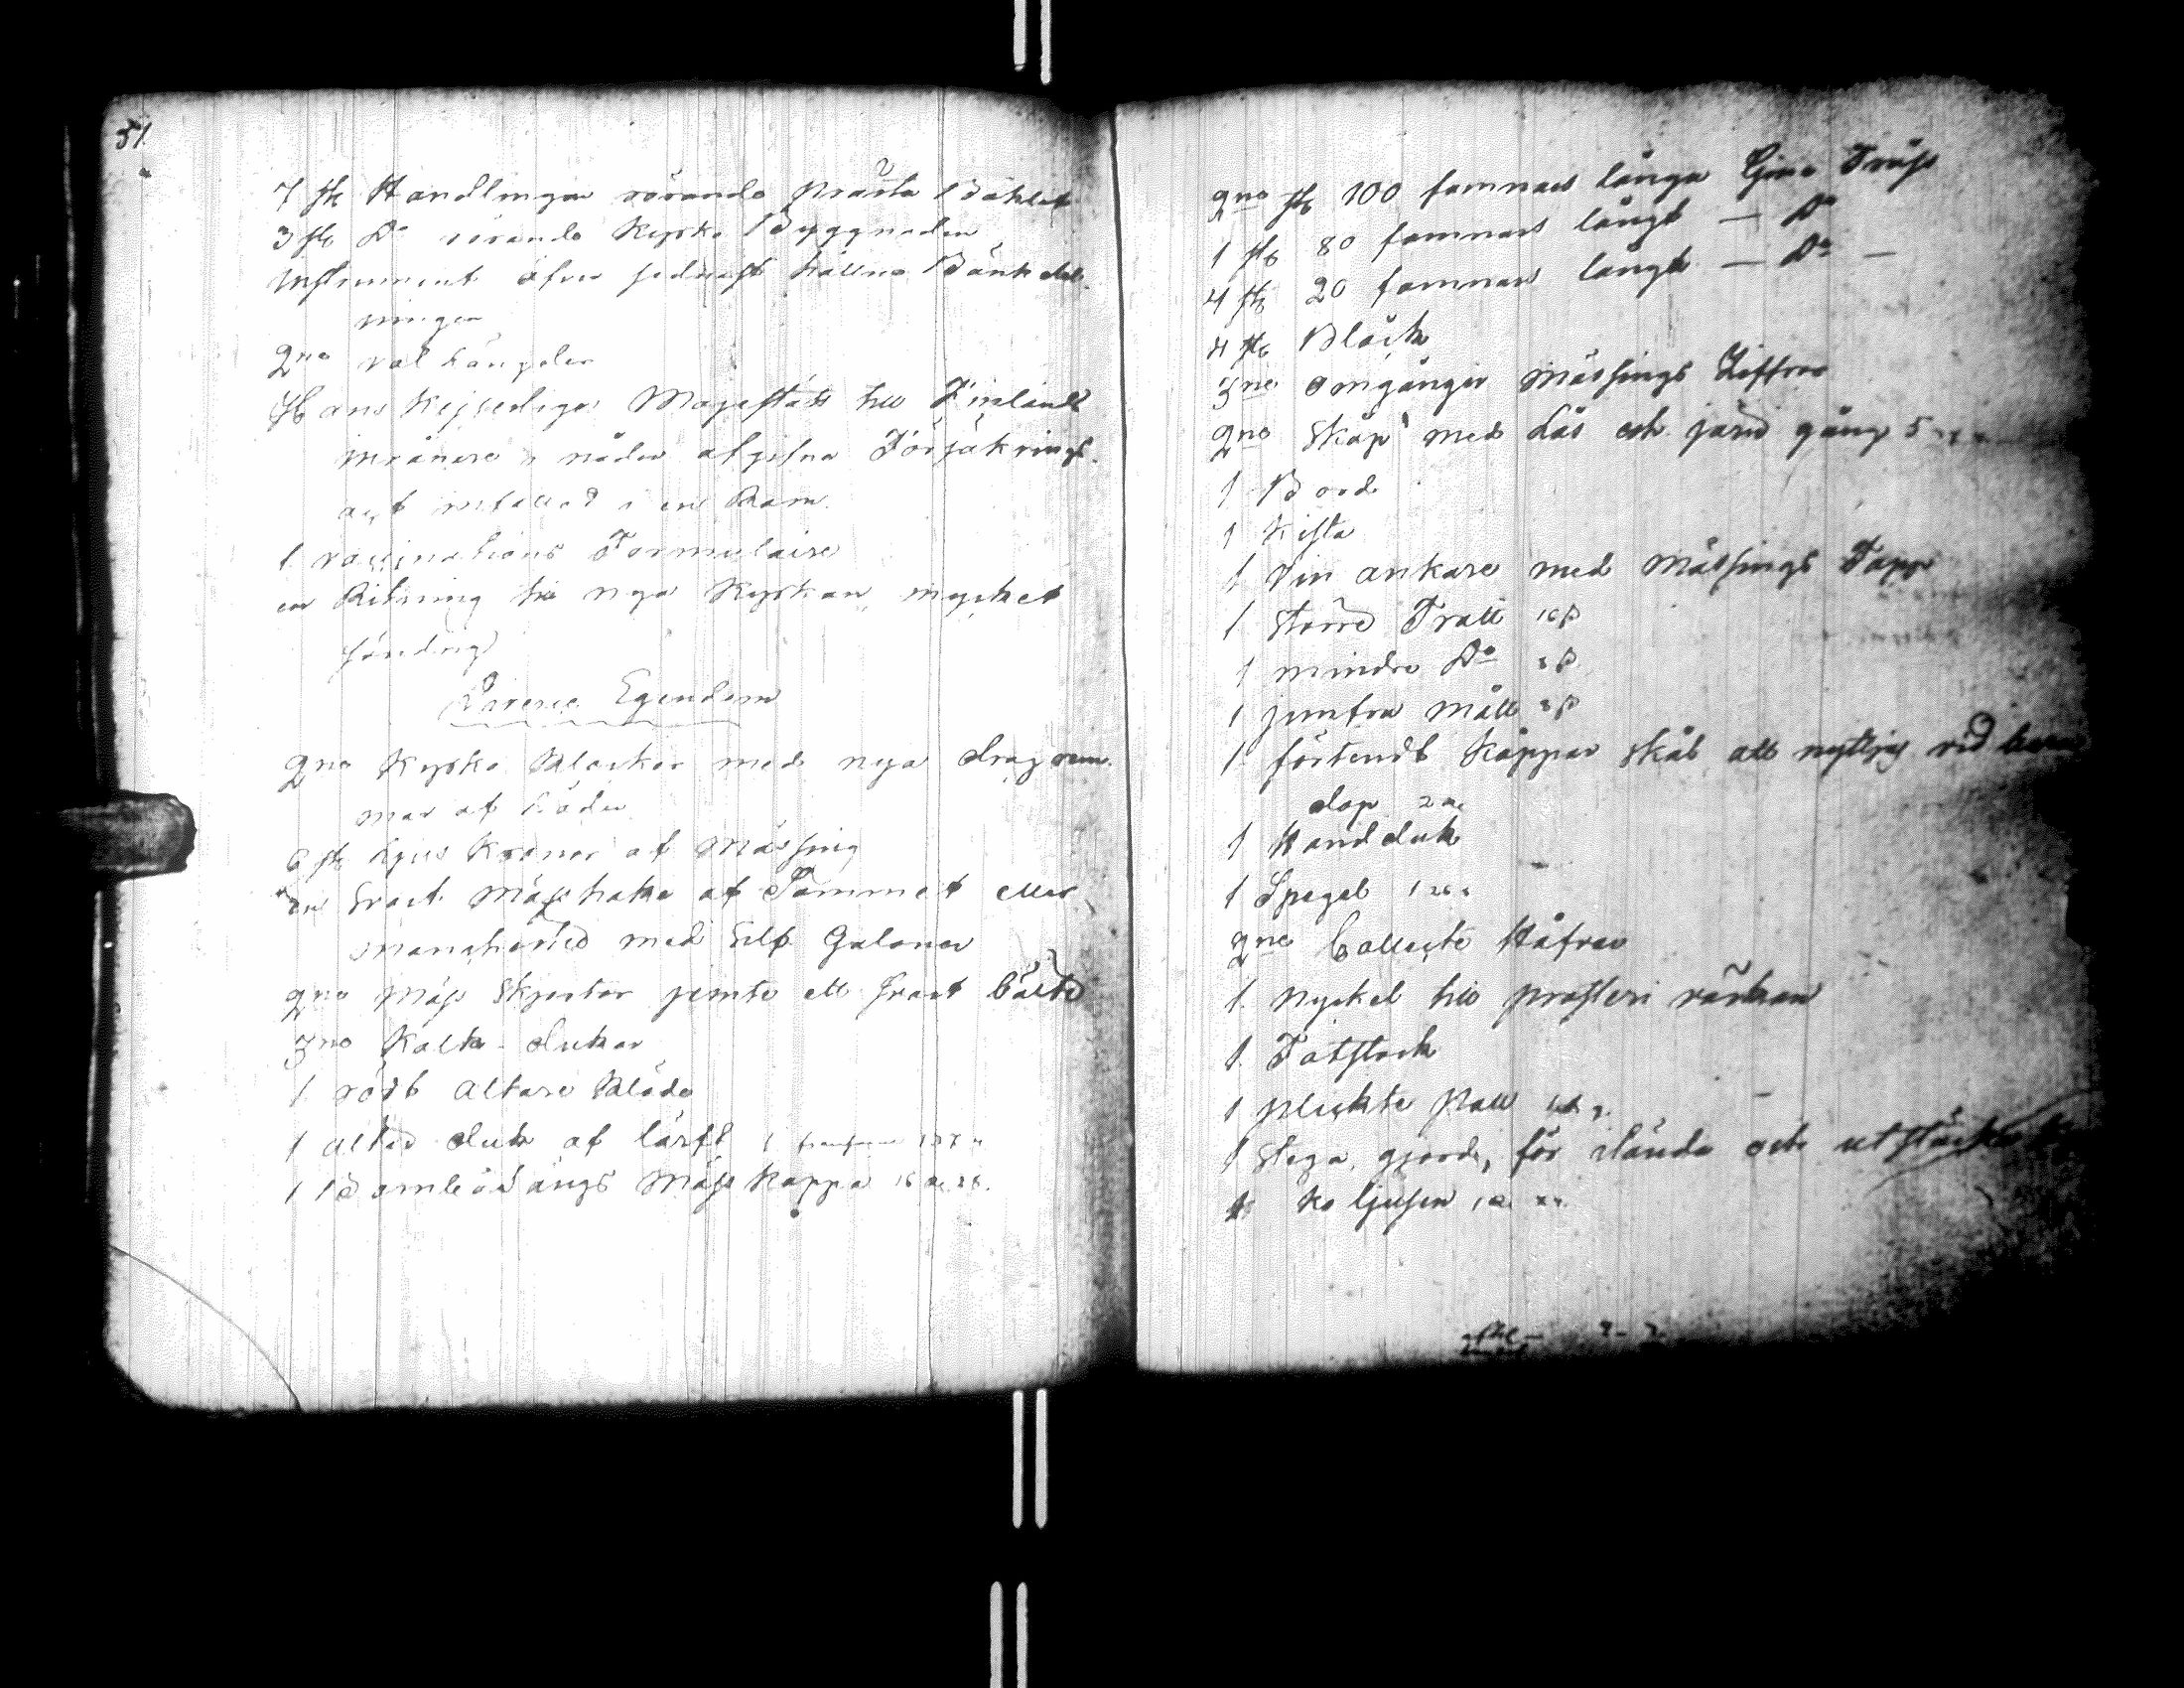 51.
7 st. Handlingar rörande Prästa Bohlet
3 st. Do rörande Kyrko Byggnaden
Instrument öfver sednast hållne Bänkdel-
ningen
2ne val Längder
Hans Kejserliga Majestäts till Finlands
invånare i nåder afgifna Försäkrings-
act infattad i en Ram.
1. vaccinations Formulaire
en Ritning till nya Kyrkan, mycket
söndrig
Diverse Egendom
2ne Kyrko Klockor med nya drag rem-
mar af Läder
6 st. Ljus Kronor af Mässing
en Svart Mässhake af Sammet eller
Manchested med Silf. Galoner
2ne Mäss Skjortor jemte ett svart bälte
3ne Kalk-dukar
1 rödt Altare Kläde
1 altar duk af lärft 1
1 Bomblsängs Mäss Kappa
2ne st. 100 famnars långa Tross
1 st. 80 famnars långt — Do
4 st. 20 famnars långt — Do —
4 st. Bläck
3ne omgångor Mässings Ziffror
2ne Skåp med Lås och järn gång 5
1 Bord
1 Kista
1 Vin ankare med Mässings Tapp
1 större Tratt 16 β
1 mindre Do 8 β
1 jumfru Mått 8 β
1 förtendt Koppar skål att nyttjas vid barn
dop
1 Handduk
1 Spegel
2ne Collecte Håfvar
1. Nyckel till prosteri
1. Fotstock
1 plickte Pall
1 Stega, gjord, för stånda och